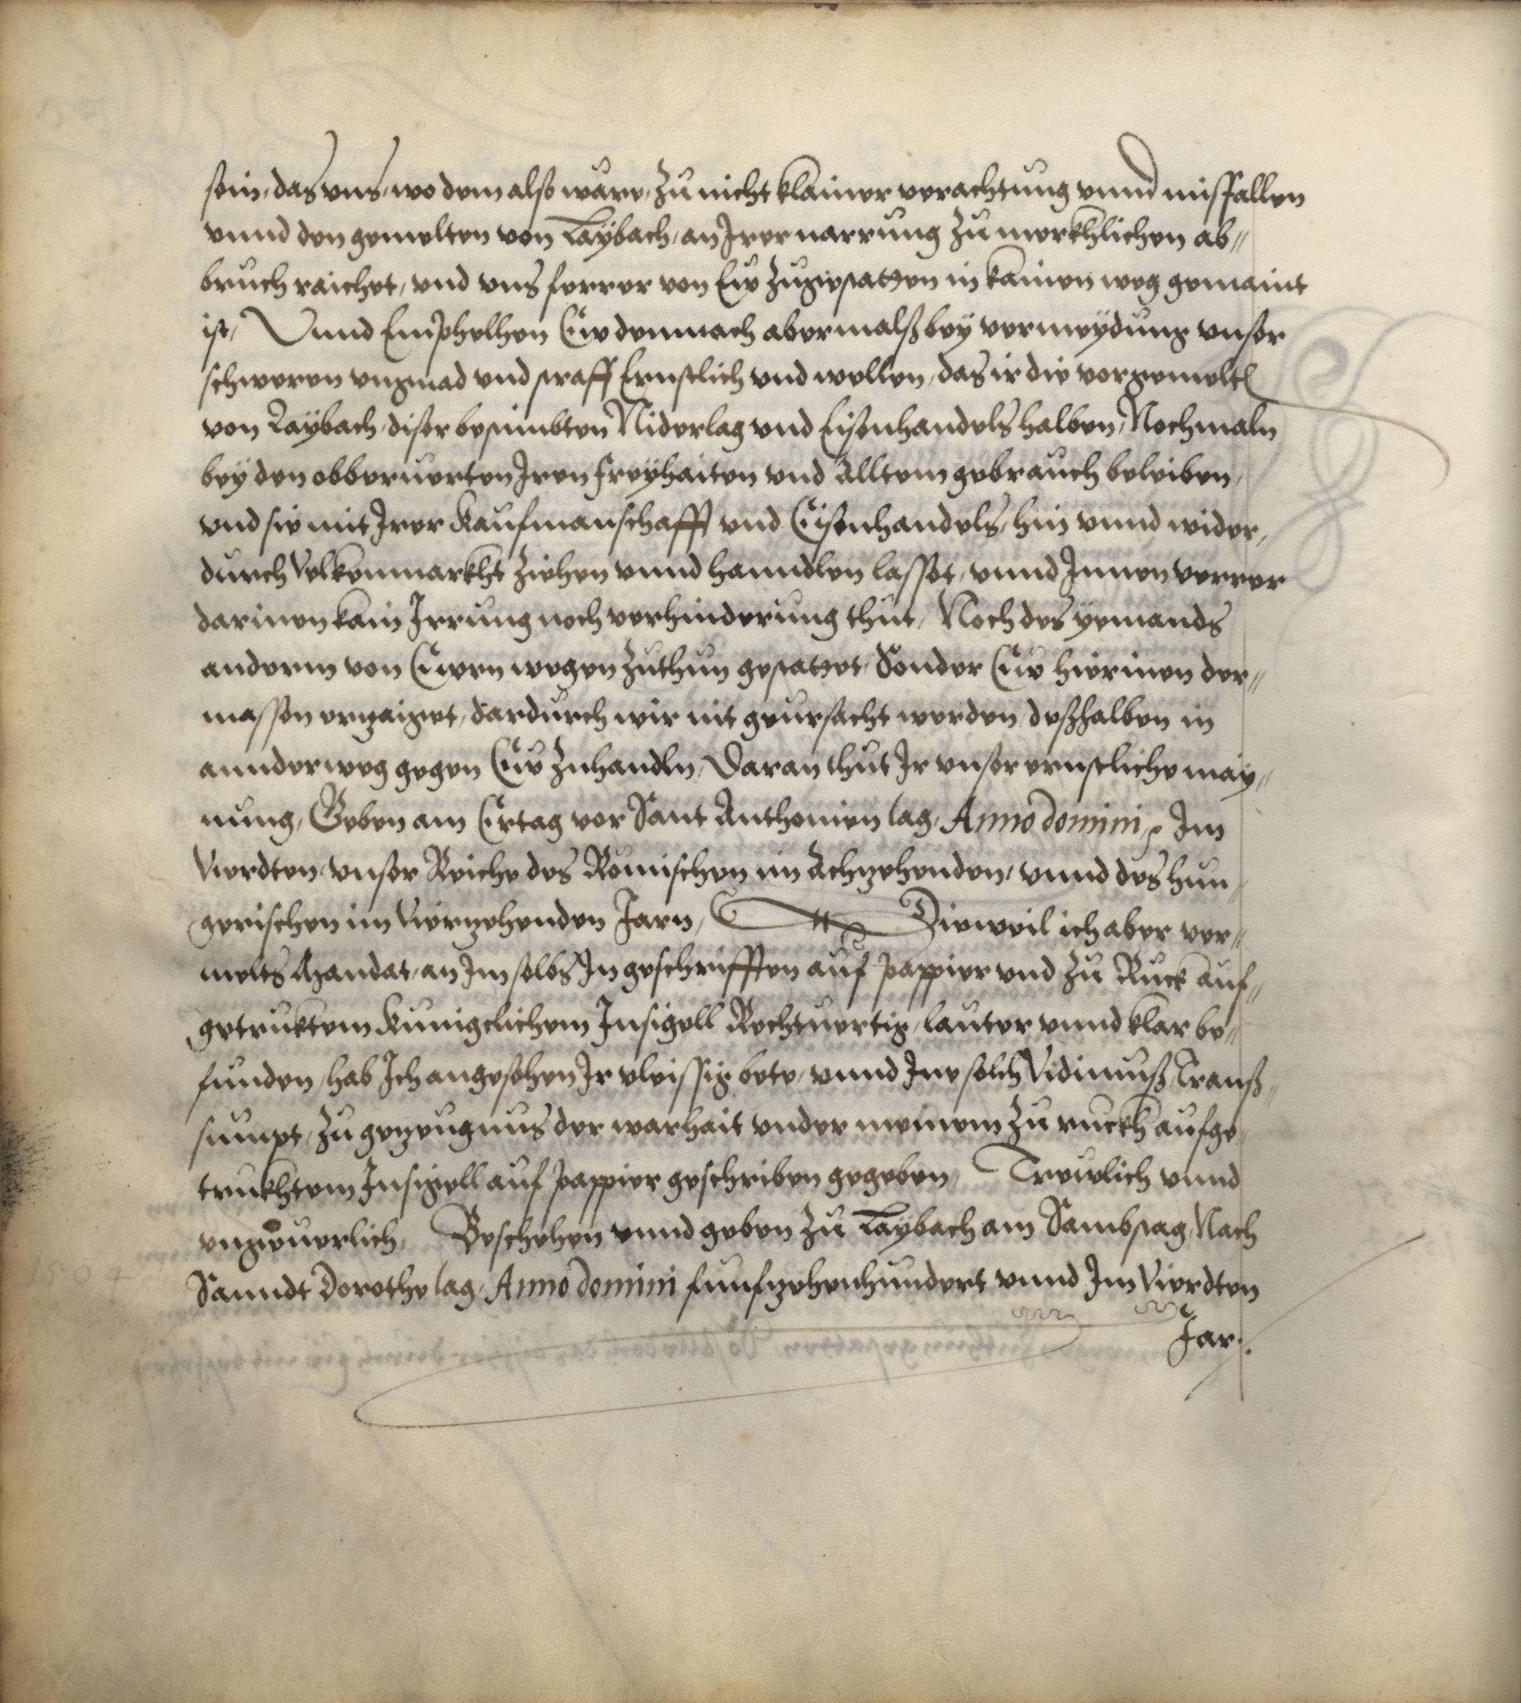 sein, das vns, wo dem also wäre, zu nicht klainer verachtung vnnd missfallen
vnnd den gemelten von Laybach, an Irer narrung zu merkhlichen ab„
bruch raichet, vnd vns ferrer von Ew zugestatten in kainen weg gemaint
ist, Vnnd Emphelhen Ew demnach abermalß bey vermeydung vnser
schweren vngnad vnd straff Ernstlich vnd wellen, das ir die vorgemelten
von Laybach, diser bestimbten Niderlag vnd Eisenhandels halben, Nochmaln
bey den obberuerten Iren freyhaiten vnd Alltem gebrauch beleiben,
vnd sie mit Irer Kaufmanschafft vnd Eisenhandels, hin vnnd wider,
durch Velkenmarkht ziehen vnnd hanndlen lasset, vnnd Innen verrer
darinen kain Irrung noch verhinderung thut, Noch des yemands
anderm von Ewren wegen zuthun gestattet, Sonder Ew hierinen der„
massen erzaiget, dardurch wir nit geursacht werden, deßhalben in
annder weg gegen Ew zuhandln, Daran thut Ir vnser ernstliche may„
nung, Geben am Ertag vor Sant Anthonien tag, Anno domini, Im
Vierdten, vnser Reiche des Römischen im Achzehenden, vnnd des hun„
gerischen im Vierzehenden Jarn, Dieweil ich aber ver„
melts Mandat, an Im selbs In geschrifften auf pappier vnd zu Ruck auf„
getruktem Kunigclichem Insigell Rechtuertig, lauter vnnd klar be„
funden, hab Ich angesehen Ir vleissig bete, vnnd Ine solch Vidimuß, Tranß„
sumpt, zu gezeugnus der warhait vnder meinem zu ruckh aufge„
trukhtem Insigell auf pappier geschriben gegeben, Trewlich vnnd
vngeuerlich, Beschehen vnnd geben zu Laybach am Sambstag Nach
Sanndt Dorothe tag, Anno domini funfzehenhundert vnnd Im Vierdten
Jar.